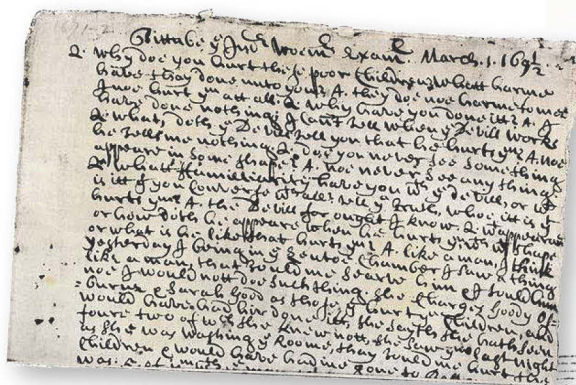 Tittube ye Ind Woem Exam. March. 1. 169½
Q. why doe you hurt these poor Children? whatt harme
have thay done unto you? A. they doe noe harme to me
I noe hurt ym att all. Q. why have you done itt? A. I
have done nothing; I Can't tell when ye Devill works
Q. what doth ye Devill tell you that he hurts ym? A. noe
he tells me nothing. Q. doe you never see Something
appeare in Some shape? A. noe never See any thing.
Q. whatt familliarity have you wth ye devill, or wt
is itt if you Converse wthall? tell ye truth, who itt is yt
hurts ym? A. the Devill for ought I know. Q. wt appearance
or how doth he appeare when he hurts ym, wth wt shape
or what is he like that hurts ym? A. like a man I think
yesterday I being in ye Lentoe Chamber I saw a thing
like a man, that tould me Searve him & I tould him
noe I would nott doe Such thing. She charges Goody Os-
burne & Sarah Good as those yt hurt ye Children, and
would have had hir done itt, she sayth she hath Seen
foure two of wch she knew nott she saw ym last night
as she was washing ye Roome, thay tould me hurt the
Children & would have had me gone to